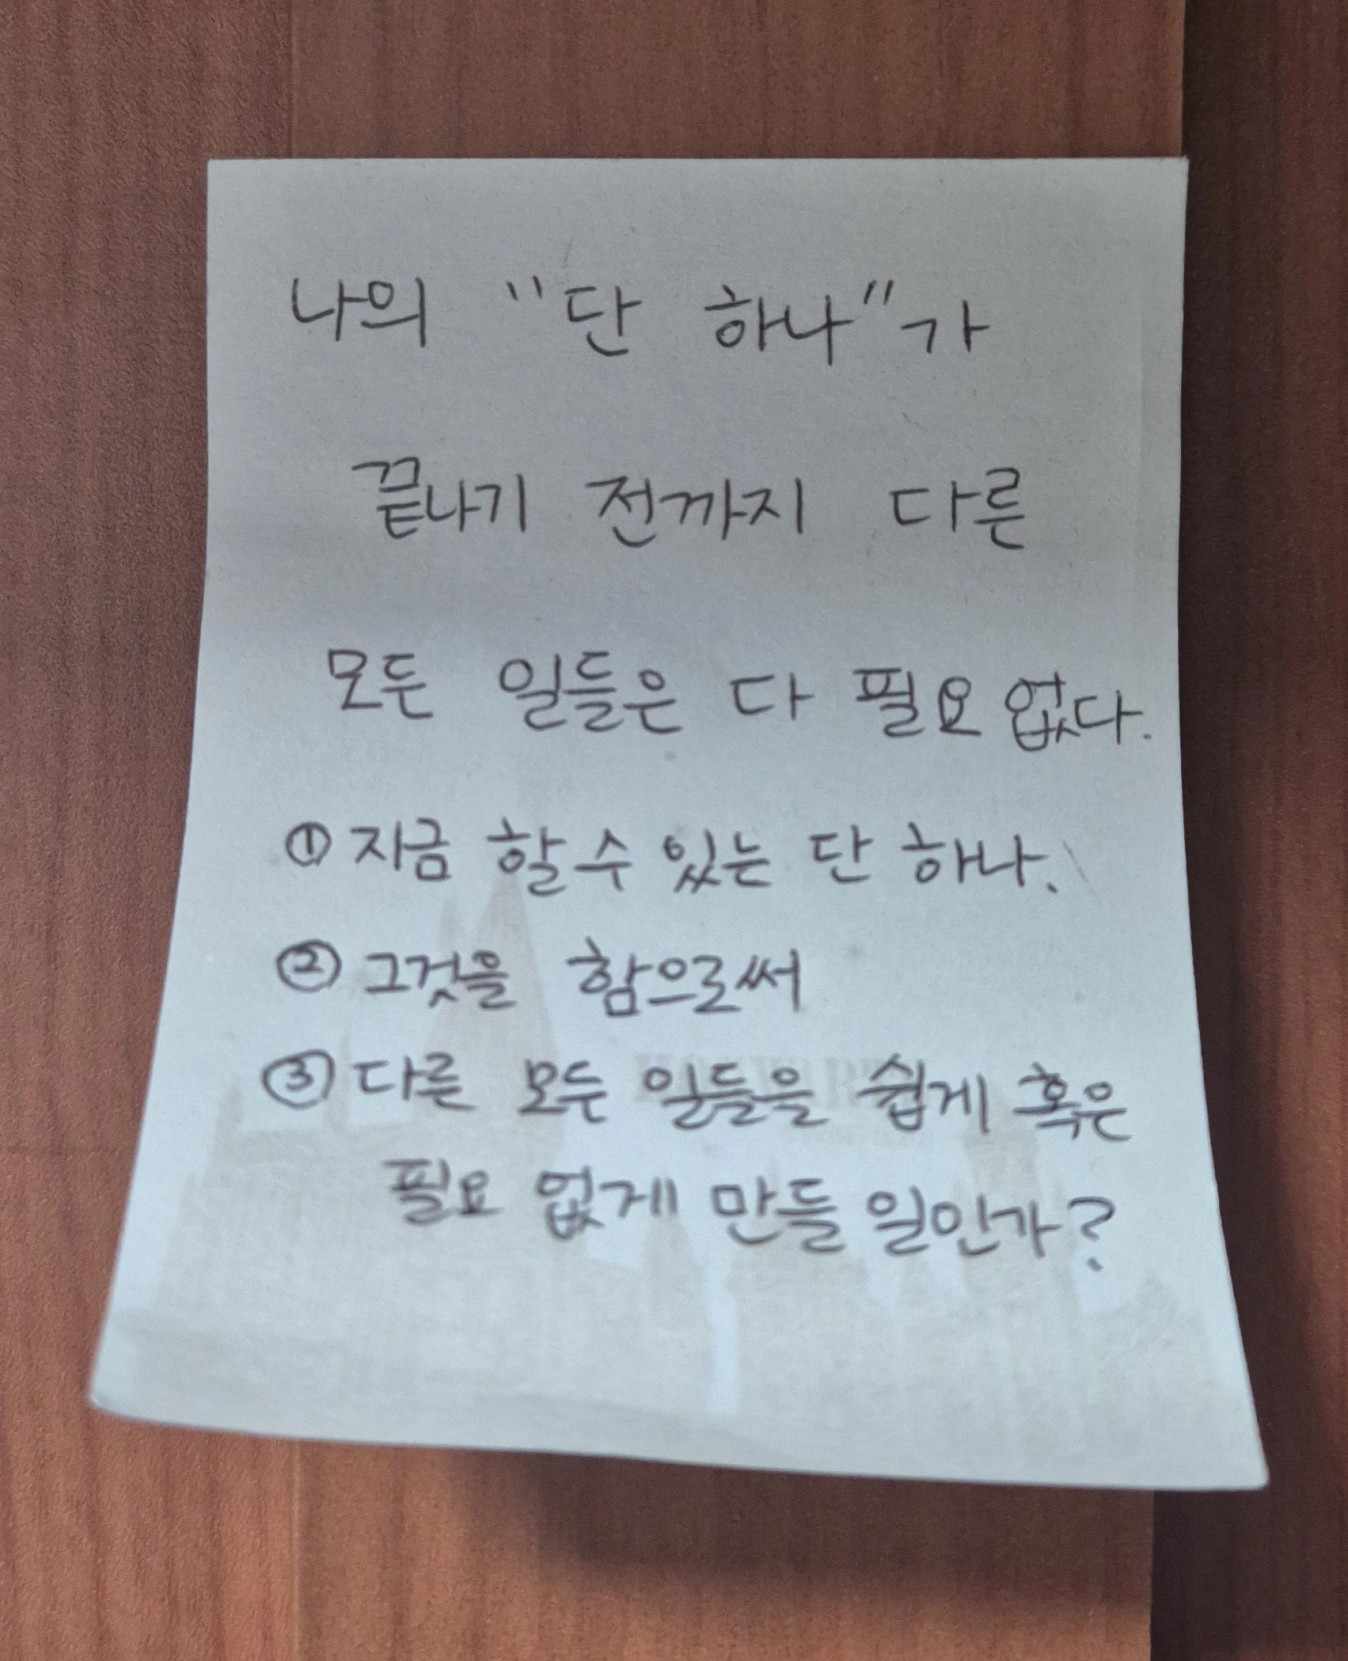 나의 "단 하나"가
끝나기 전까지 다른
모든 일들은 다 필요 없다.
① 지금 할 수 있는 단 하나.
② 그것을 함으로써
③ 다른 모든 일들을 쉽게 혹은
필요 없게 만들 일인가?